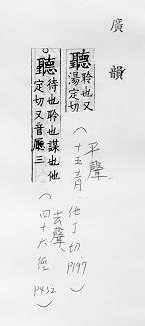 廣韻
聽 聆也又
湯定切
平聲
(十五青 他丁切 P197)
聽 待也聆也謀也他
定切又音廳三
去聲
(四十六徑 P432)